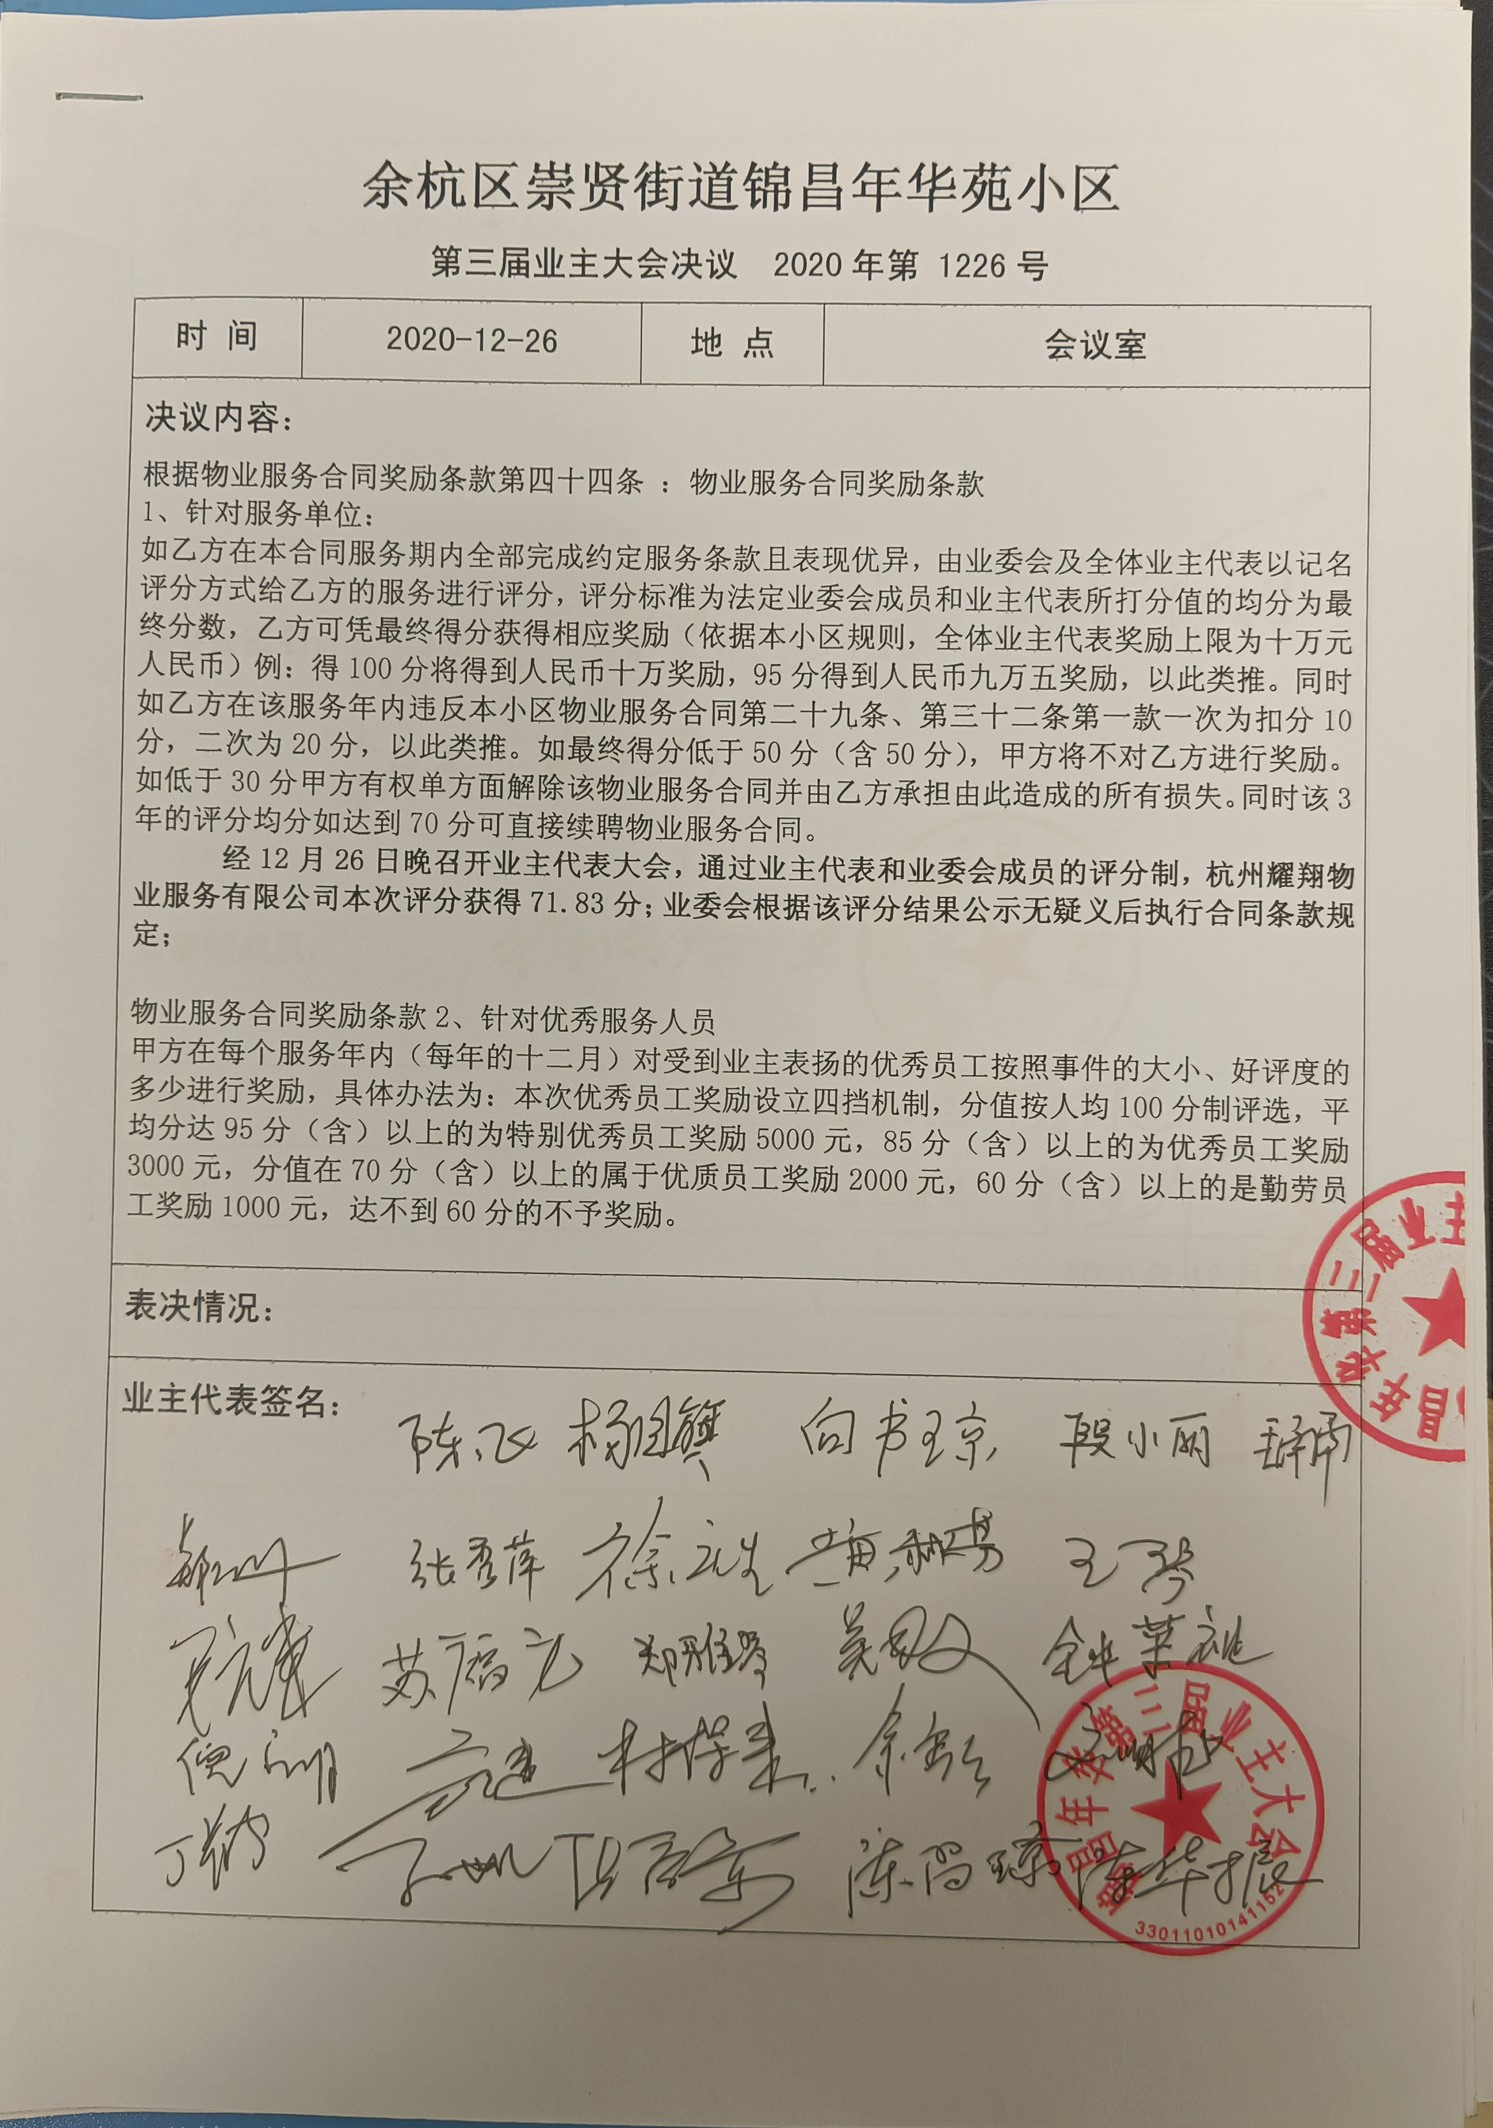 余杭区崇贤街道锦昌年华苑小区
第三届业主大会决议 2020年第 1226号
时 间 2020-12-26 地 点 会议室
决议内容：
根据物业服务合同奖励条款第四十四条 ：物业服务合同奖励条款
1、针对服务单位：
如乙方在本合同服务期内全部完成约定服务条款且表现优异，由业委会及全体业主代表以记名
评分方式给乙方的服务进行评分，评分标准为法定业委会成员和业主代表所打分值的均分为最
终分数，乙方可凭最终得分获得相应奖励（依据本小区规则，全体业主代表奖励上限为十万元
人民币）例：得100分将得到人民币十万奖励，95分得到人民币九万五奖励，以此类推。同时
如乙方在该服务年内违反本小区物业服务合同第二十九条、第三十二条第一款一次为扣分10
分，二次为20分，以此类推。如最终得分低于50分（含50分），甲方将不对乙方进行奖励。
如低于30分甲方有权单方面解除该物业服务合同并由乙方承担由此造成的所有损失。同时该3
年的评分均分如达到70分可直接续聘物业服务合同。
经12月26日晚召开业主代表大会，通过业主代表和业委会成员的评分制，杭州耀翔物
业服务有限公司本次评分获得71.83分；业委会根据该评分结果公示无疑义后执行合同条款规
定；
物业服务合同奖励条款2、针对优秀服务人员
甲方在每个服务年内（每年的十二月）对受到业主表扬的优秀员工按照事件的大小、好评度的
多少进行奖励，具体办法为：本次优秀员工奖励设立四挡机制，分值按人均100分制评选，平
均分达95分（含）以上的为特别优秀员工奖励5000元，85分（含）以上的为优秀员工奖励
3000元，分值在70分（含）以上的属于优质员工奖励2000元，60分（含）以上的是勤劳员
工奖励1000元，达不到60分的不予奖励。
届业主
年华第三
昌
表决情况：
业主代表签名：
陈飞 向书琼 段小丽
张秀萍 徐 王琴
苏福 郑雅琴 吴敏
倪
丁 陈昌琼 陈华振
锦昌年华第三届业主大会
33011010141152